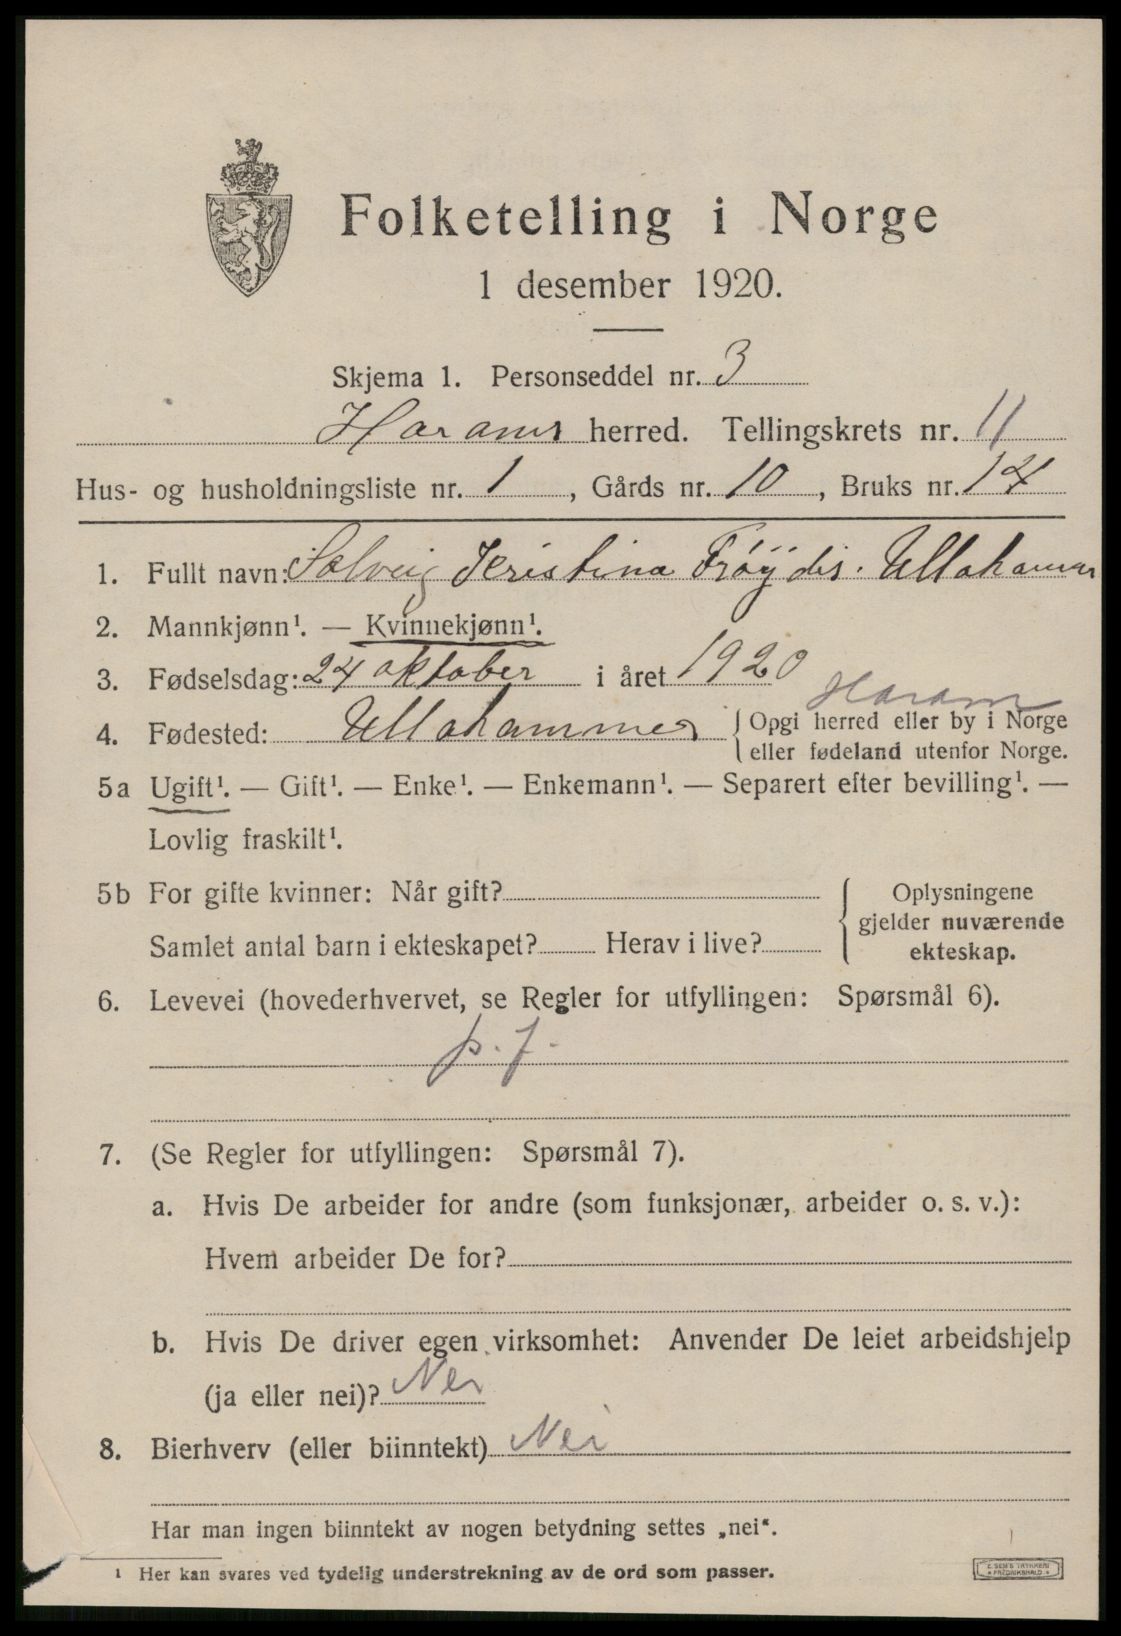 Folketelling i Norge
1 desember 1920.
Skjema 1. Personseddel nr. 3
Harams herred. Tellingskrets nr. 11
Hus- og husholdningsliste nr. 1, Gårds nr. 10, Bruks nr. 14
1. Fullt navn: Solveig Kristina Frøydis. Ullahammer
2. Mannkjønn¹. — Kvinnekjønn¹.
3. Fødselsdag: 24 oktober i året 1920
Haram
4. Fødested: Ullahammer { Opgi herred eller by i Norge
eller fødeland utenfor Norge.
5a Ugift¹. — Gift¹. — Enke¹. — Enkemann¹. — Separert efter bevilling¹. —
Lovlig fraskilt¹.
5b For gifte kvinner: Når gift?
Samlet antal barn i ekteskapet? Herav i live?
{ Oplysningene
gjelder nuværende
ekteskap.
6. Levevei (hovederhvervet, se Regler for utfyllingen: Spørsmål 6).
p. f.
7. (Se Regler for utfyllingen: Spørsmål 7).
a. Hvis De arbeider for andre (som funksjonær, arbeider o. s. v.):
Hvem arbeider De for?
b. Hvis De driver egen virksomhet: Anvender De leiet arbeidshjelp
(ja eller nei)? Nei
8. Bierhverv (eller biinntekt) Nei
Har man ingen biinntekt av nogen betydning settes „nei“.
¹ Her kan svares ved tydelig understrekning av de ord som passer.
E. SEM'S TRYKKERI
FREDRIKSHALD